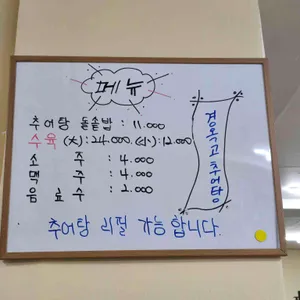 메뉴
추어탕 돌솥밥 : 11.000
수육 (大):24.000. (小):12.000
소 주 : 4.000
맥 주 : 4.000
음 료 수 : 2.000
경옥고추어탕
추어탕 리필 가능 합니다.